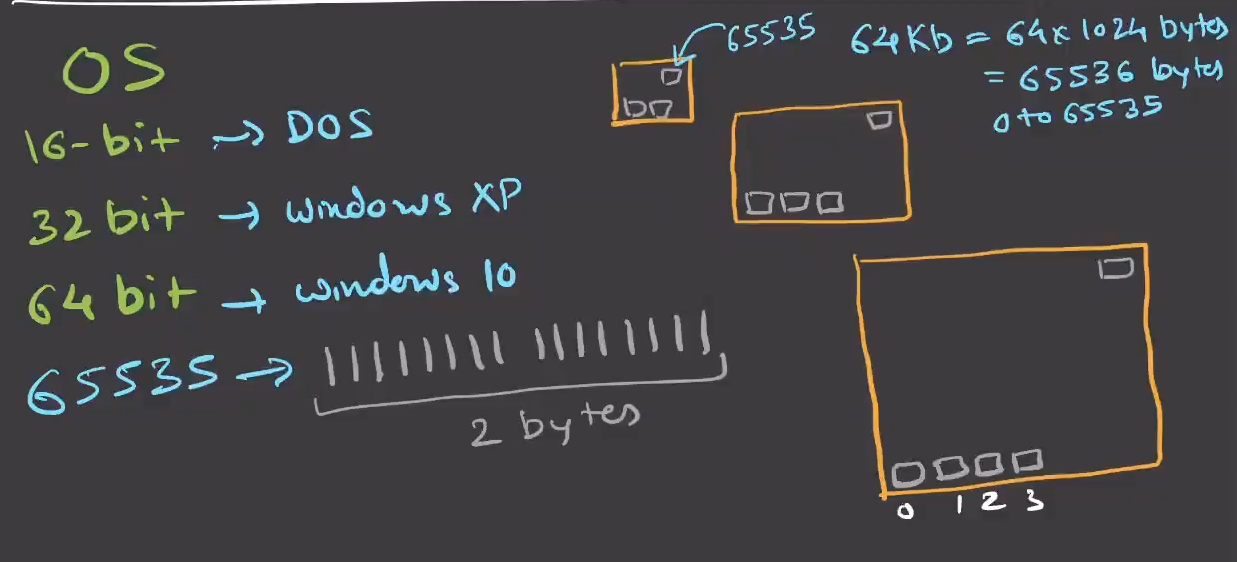 OS
16-bit → DOS
32 bit → windows XP
64 bit → windows 10
65535 → 11111111 11111111
2 bytes
65535
64Kb = 64x1024 bytes
= 65536 bytes
0 to 65535
0 1 2 3